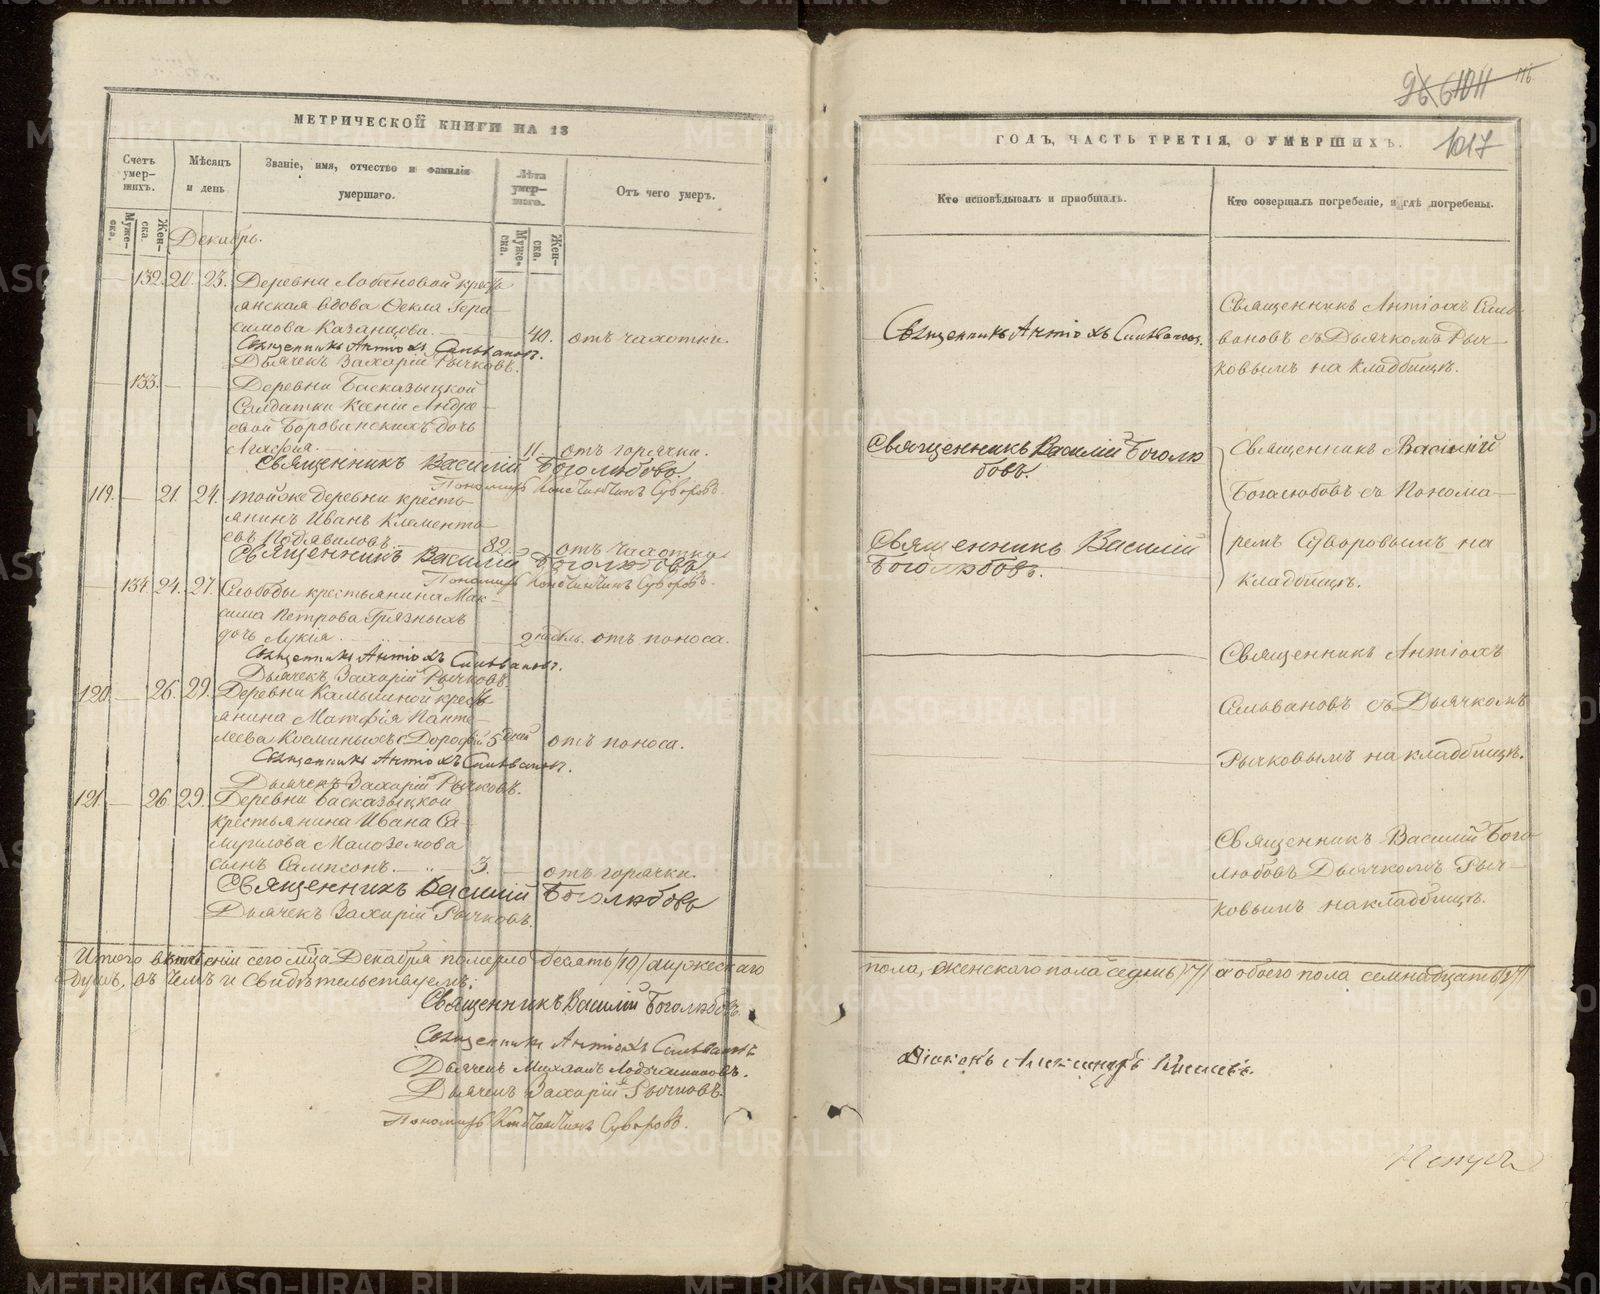 МЕТРИЧЕСКОЙ КНИГИ НА 18
Счетъ умер-шихъ.
Мѣсяцъ и день
Званіе, имя, отчество и фамилія умершаго.
Лѣта умер-шаго.
Отъ чего умеръ.
Муже-ска.
Жен-ска.
Муже-ска.
Жен-ска.
Декабрь.
132. 20. 23. Деревни Лобановой кресть
янская вдова Ѳекла Гера-
симова Казанцова. 40. отъ чахотки.
Священникъ Антіохъ Сильвановъ.
Дьячекъ Захарій Рычковъ.
133. Деревни Басказыцкой
Салдатки Ксеніи Андре-
евой Боровинскихъ дочь
Агафія. 11. отъ горячки.
Священникъ Василій Боголюбовъ
Пономарь Константинъ Суворовъ.
119. 21. 24. тойже деревни кресть-
янинъ Иванъ Клементь-
евъ 82. отъ чахотки
Священникъ Василій Боголюбовъ
Пономарь Константинъ Суворовъ.
134. 24. 27. Слободы крестьянина Мак-
сима Петрова Грязныхъ
дочь Лукія 2 недѣль. отъ поноса.
Священникъ Антіохъ Сильвановъ.
Дьячекъ Захарій Рычковъ.
120. 26. 29. Деревни Камышной кресть
янина Матфія Панте-
леева Косминыхъ с. Дорофей 5 дней отъ поноса.
Священникъ Антіохъ Сильвановъ.
Дьячекъ Захарій Рычковъ.
121. 26. 29. Деревни Басказыцкой
крестьянина Ивана Са-
муилова Малоземова
сынъ Сампсонъ. 3. отъ горячки.
Священникъ Василій Боголюбовъ
Дьячекъ Захарій Рычковъ.
Итого въ теченіи сего мѣсяца Декабря померло десять /10/ мужескаго
душъ, въ чемъ и свидѣтельствуемъ:
Священникъ Василій Боголюбовъ.
Священникъ Антіохъ Сильвановъ
Дьячекъ Михаилъ
Дьячекъ Захарій Рычковъ.
Пономарь Константинъ Суворовъ.
1011
1017
ГОДЪ, ЧАСТЬ ТРЕТІЯ, О УМЕРШИХЪ.
Кто исповѣдывалъ и пріобщалъ.
Кто совершалъ погребеніе, и гдѣ погребены.
Священникъ Антіохъ Сильвановъ.
Священникъ Антіохъ Силь-
вановъ съ Дьячкомъ Рыч-
ковымъ на кладбищѣ.
Священникъ Василій Боголю
бовъ.
Священникъ Василій
Боголюбовъ съ Понома-
Священникъ Василій
Боголюбовъ.
ремъ Суворовымъ на
кладбищѣ.
Священникъ Антіохъ
Сильвановъ съ Дьячкомъ
Рычковымъ на кладбищѣ.
Священникъ Василій Бого-
любовъ Дьячкомъ Рыч-
ковымъ на кладбищѣ.
пола, женскаго пола седмь /7/ а обоего пола семнадцать /17/
Діаконъ Александръ